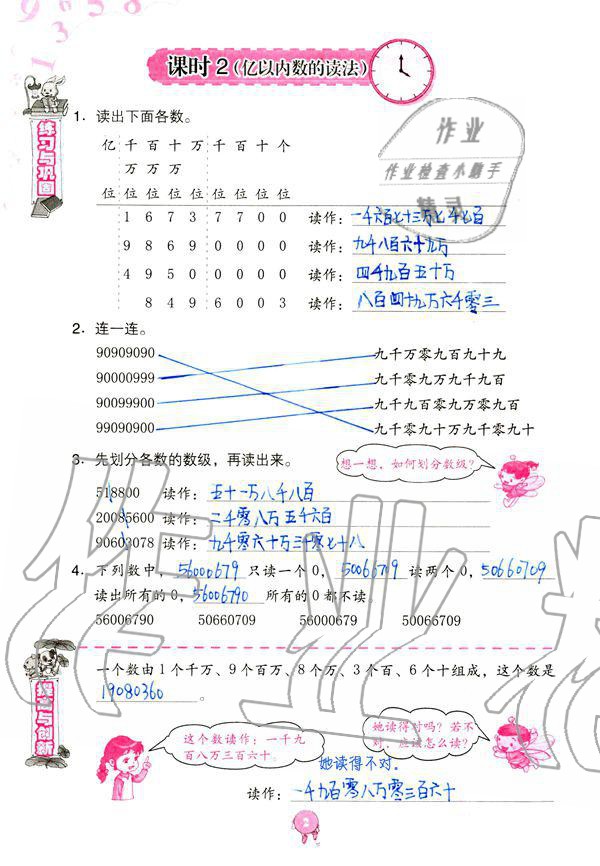 课时2(亿以内数的读法)
练习与巩固
1. 读出下面各数。
亿 千 百 十 万 千 百 十 个
万 万 万
位 位 位 位 位 位 位 位 位
1 6 7 3 7 7 0 0 读作:一千六百七十三万七千七百
9 8 6 9 0 0 0 0 读作:九千八百六十九万
4 9 5 0 0 0 0 0 读作:四千九百五十万
8 4 9 6 0 0 3 读作:八百四十九万六千零三
作业
作业检查小助手
精灵
2. 连一连。
90909090 九千万零九百九十九
90000999 九千零九万九千九百
90099900 九千九百零九万零九百
99090900 九千零九十万九千零九十
3. 先划分各数的数级,再读出来。
想一想,如何划分数级?
518800 读作:五十一万八千八百
20085600 读作:二千零八万五千六百
90603078 读作:九千零六十万三千零七十八
4. 下列数中,56000679只读一个0,50066079读两个0,50660709
读出所有的0,56006790所有的0都不读。
56006790 50660709 56000679 50066709
找与创新
一个数由1个千万、9个百万、8个万、3个百、6个十组成,这个数是
19080360。
这个数读作:一千九
百八万三百六十。
她读得对吗?若不
对,应读怎么读?
她读得不对。
读作:一千九百零八万零三百六十
2
作业精